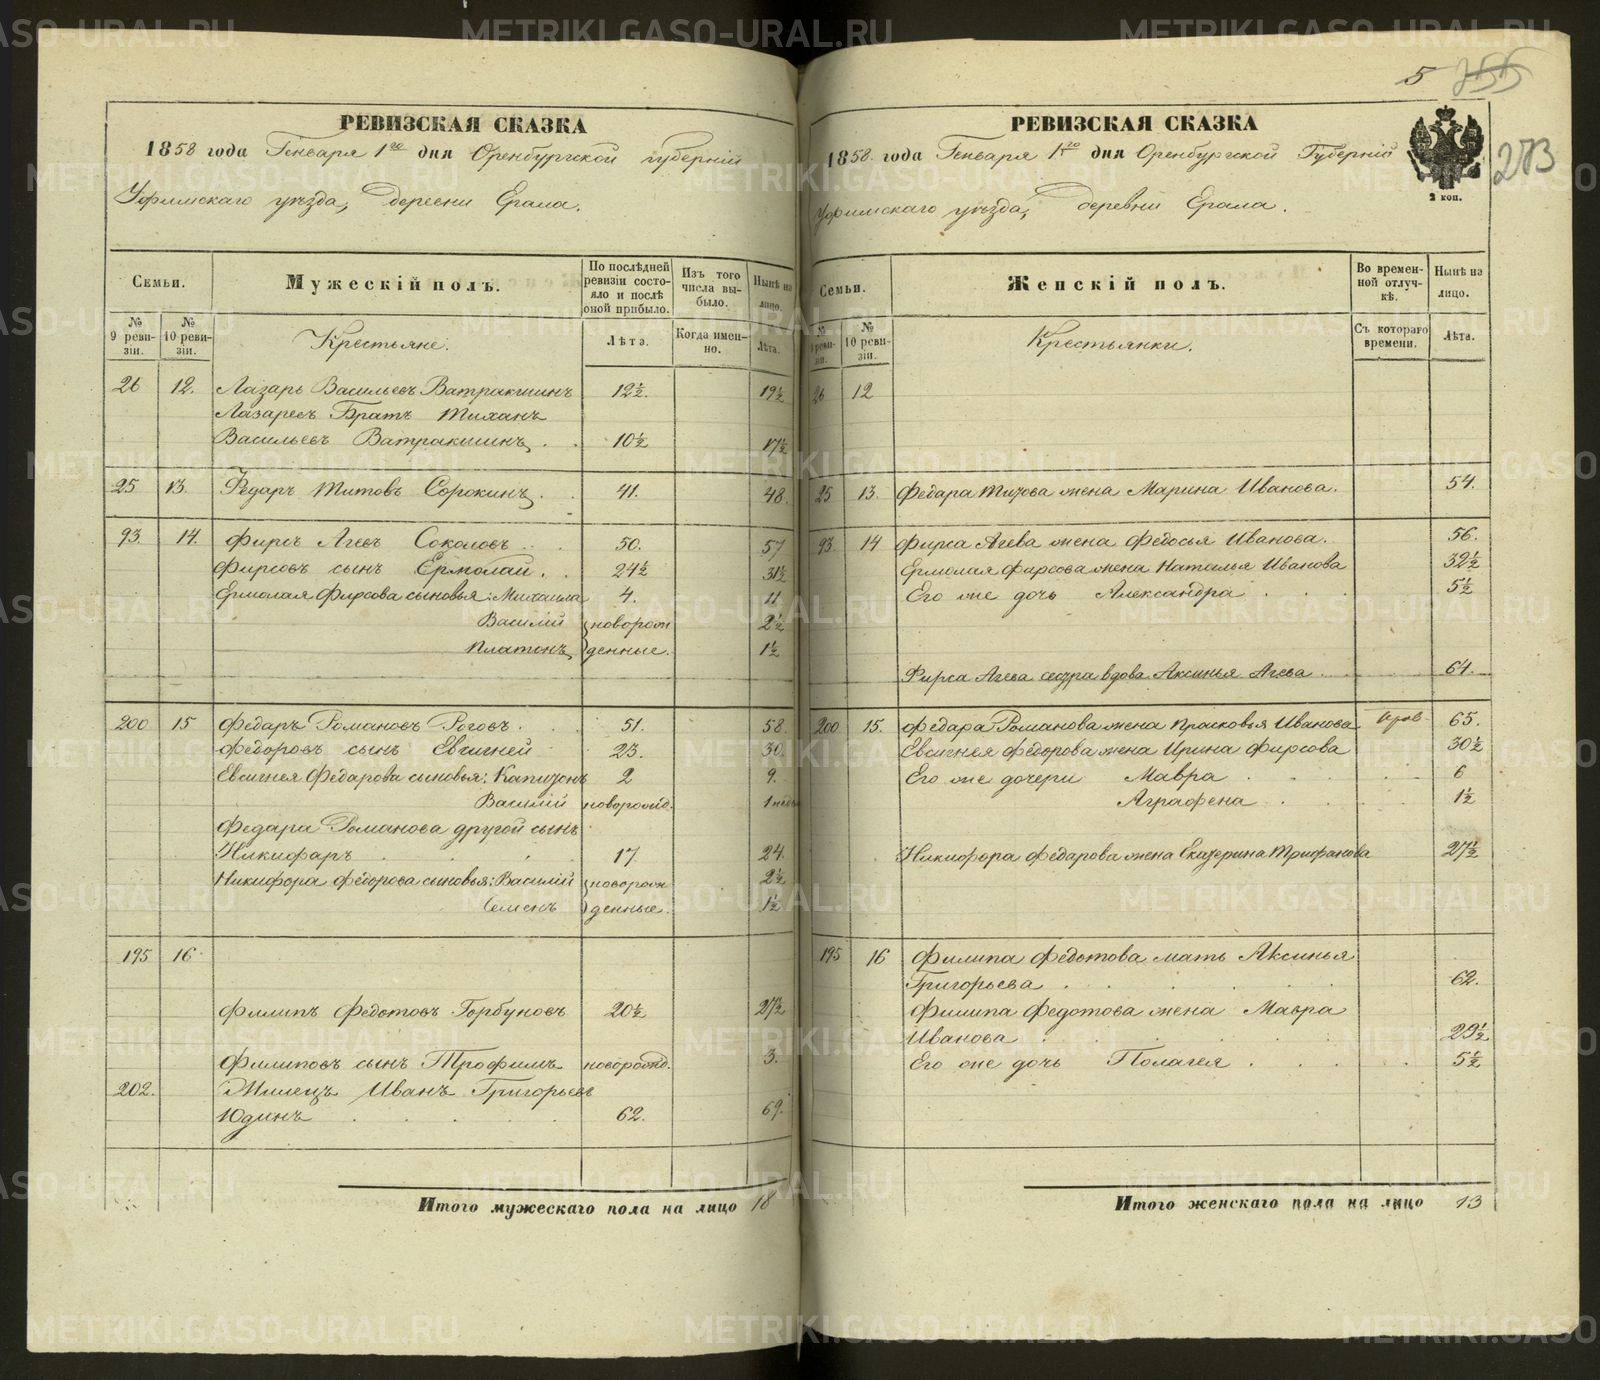 5 255
273
РЕВИЗСКАЯ СКАЗКА
1858 года Генваря 1го дня Оренбургской губерніи
Уфимскаго уѣзда, деревни Ерала.
Семьи.
№ 9 ревизіи.
№ 10 ревизіи.
Мужескій полъ.
По послѣдней ревизіи состояло и послѣ оной прибыло.
Изъ того числа выбыло.
Нынѣ на лицо.
Крестьяне.
Лѣта.
Когда именно.
Лѣта.
26 12. Лазарь Васильевъ Ватракшинъ 12½. 19½
Лазаревъ Братъ Тиханъ
Васильевъ Ватракшинъ 10½ 17½
25 13. Федаръ Титовъ Сорокинъ 41. 48.
93. 14. Фирсъ Агевъ Соколовъ 50. 57
Фирсовъ сынъ Ермолай. 24½ 31½
Ермолая Фирсова сыновья: Михаила 4. 11
Василій новорож 2½
Платонъ денные. 1½
200 15 Федаръ Романовъ Роговъ 51. 58.
Федоровъ сынъ Евсигней 23. 30.
Евсигнея Федарова сыновья: Капитонъ 2 9.
Василій новорожд. 1 нед
Федара Романова другой сынъ
Никифаръ 17 24.
Никифора Федорова сыновья: Василій новорож 2½
Семенъ денные. 1½
195 16
Филипъ Федотовъ Горбуновъ 20½ 27½
Филиповъ сынъ Трофимъ новорожд. 3.
202. Жилецъ Иванъ Григорьевъ
Юдинъ 62. 69.
Итого мужескаго пола на лицо 18
РЕВИЗСКАЯ СКАЗКА
1858. года Генваря 1го дня Оренбургской Губерніи
Уфимскаго уѣзда, деревни Ерала.
2 коп.
Семьи.
№ 9 ревизіи.
№ 10 ревизіи.
Женскій полъ.
Во временной отлучкѣ.
Нынѣ на лицо.
Крестьянки.
Съ котораго времени.
Лѣта.
26 12
25 13. Федара Титова жена Марина Иванова. 54.
93. 14 Фирса Агева жена Федосья Иванова. 56.
Ермолая Фирсова жена Наталья Иванова 32½
Его же дочь Александра 5½
Фирса Агева сестра вдова Аксинья Агева 64.
200 15. Федара Романова жена Прасковья Иванова 65.
Евсигнея Федорова жена Ирина Фирсова 30½
Его же дочери Мавра 6
Аграфена 1½
Никифора Федарова жена Екатерина Трифанова 27½
195 16 Филипа Федотова мать Аксинья
Григорьева 62.
Филипа Федотова жена Мавра
Иванова 29½
Его же дочь Полагея 5½
Итого женскаго пола на лицо 13
METRIKI.GASO-URAL.RU